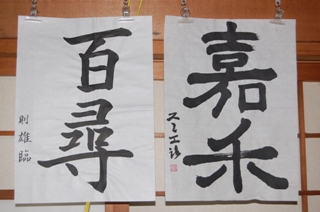 百尋
則雄臨
嘉禾